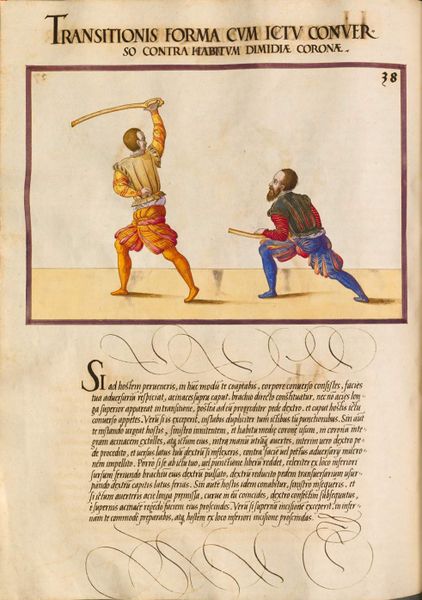 TRANSITIONIS FORMA CVM ICTV CONVER-
SO CONTRA HABITVM DIMIDIÆ CORONÆ.
38
Si ad hostem perueneris, in hūc modū te coaptabis, corpore conuerso consistes, facies
tua aduersariū respiciat, acinaces supra caput, brachio directo constituatur, nec nō acies lon-
ga superior appareat in transitione, postea ad eū progrediter pede dextro, et caput hostis ictu
conuerso appetes. Verū si is exceperit, instabis dupliciter tum ictibus tū punctionibus. Sin aūt
te instando urgeat hostis, sinistro innitentem, et habitu mediæ coronę usum, in coronā inte-
gram acinacem extolles, atq ictum eius, intra manū utrāq auertes, interim uero dextro pe-
de procedito, et ucrsus latus tuū dextrū si inflexeris, contra faciē uel pectus aduersarij mucro-
nem impellito. Porro si se ab ictu tuo, uel punctione libera reddet, celeriter ex loco inferiori
sursum feriendo brachiū eius dextrū pulsato, dextrū reducito pedem transuersarium usur-
pando dextrū capitis latus ferias. Sin aute hostis idem conabitur, sinistro insequeris, et
si ictum auerteris acie longa pręmissa, curuę in eū coincides, dextro confestim subsequutus,
è supernis acinacē reijcēdo faciem eius proscindes. Verū si supernā incisione exceperit, in infer-
nam te commodè preparabis, atq hostem ex loco inferiori incisione proscindas.